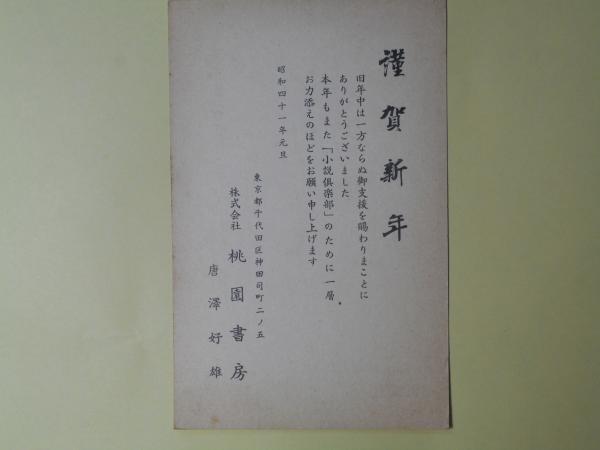 謹賀新年
旧年中は一方ならぬ御支援を賜わりまことに
ありがとうございました
本年もまた「小説倶楽部」のために一層
お力添えのほどをお願い申し上げます
昭和四十一年元旦
東京都千代田区神田司町二ノ五
株式会社 桃園書房
唐澤好雄